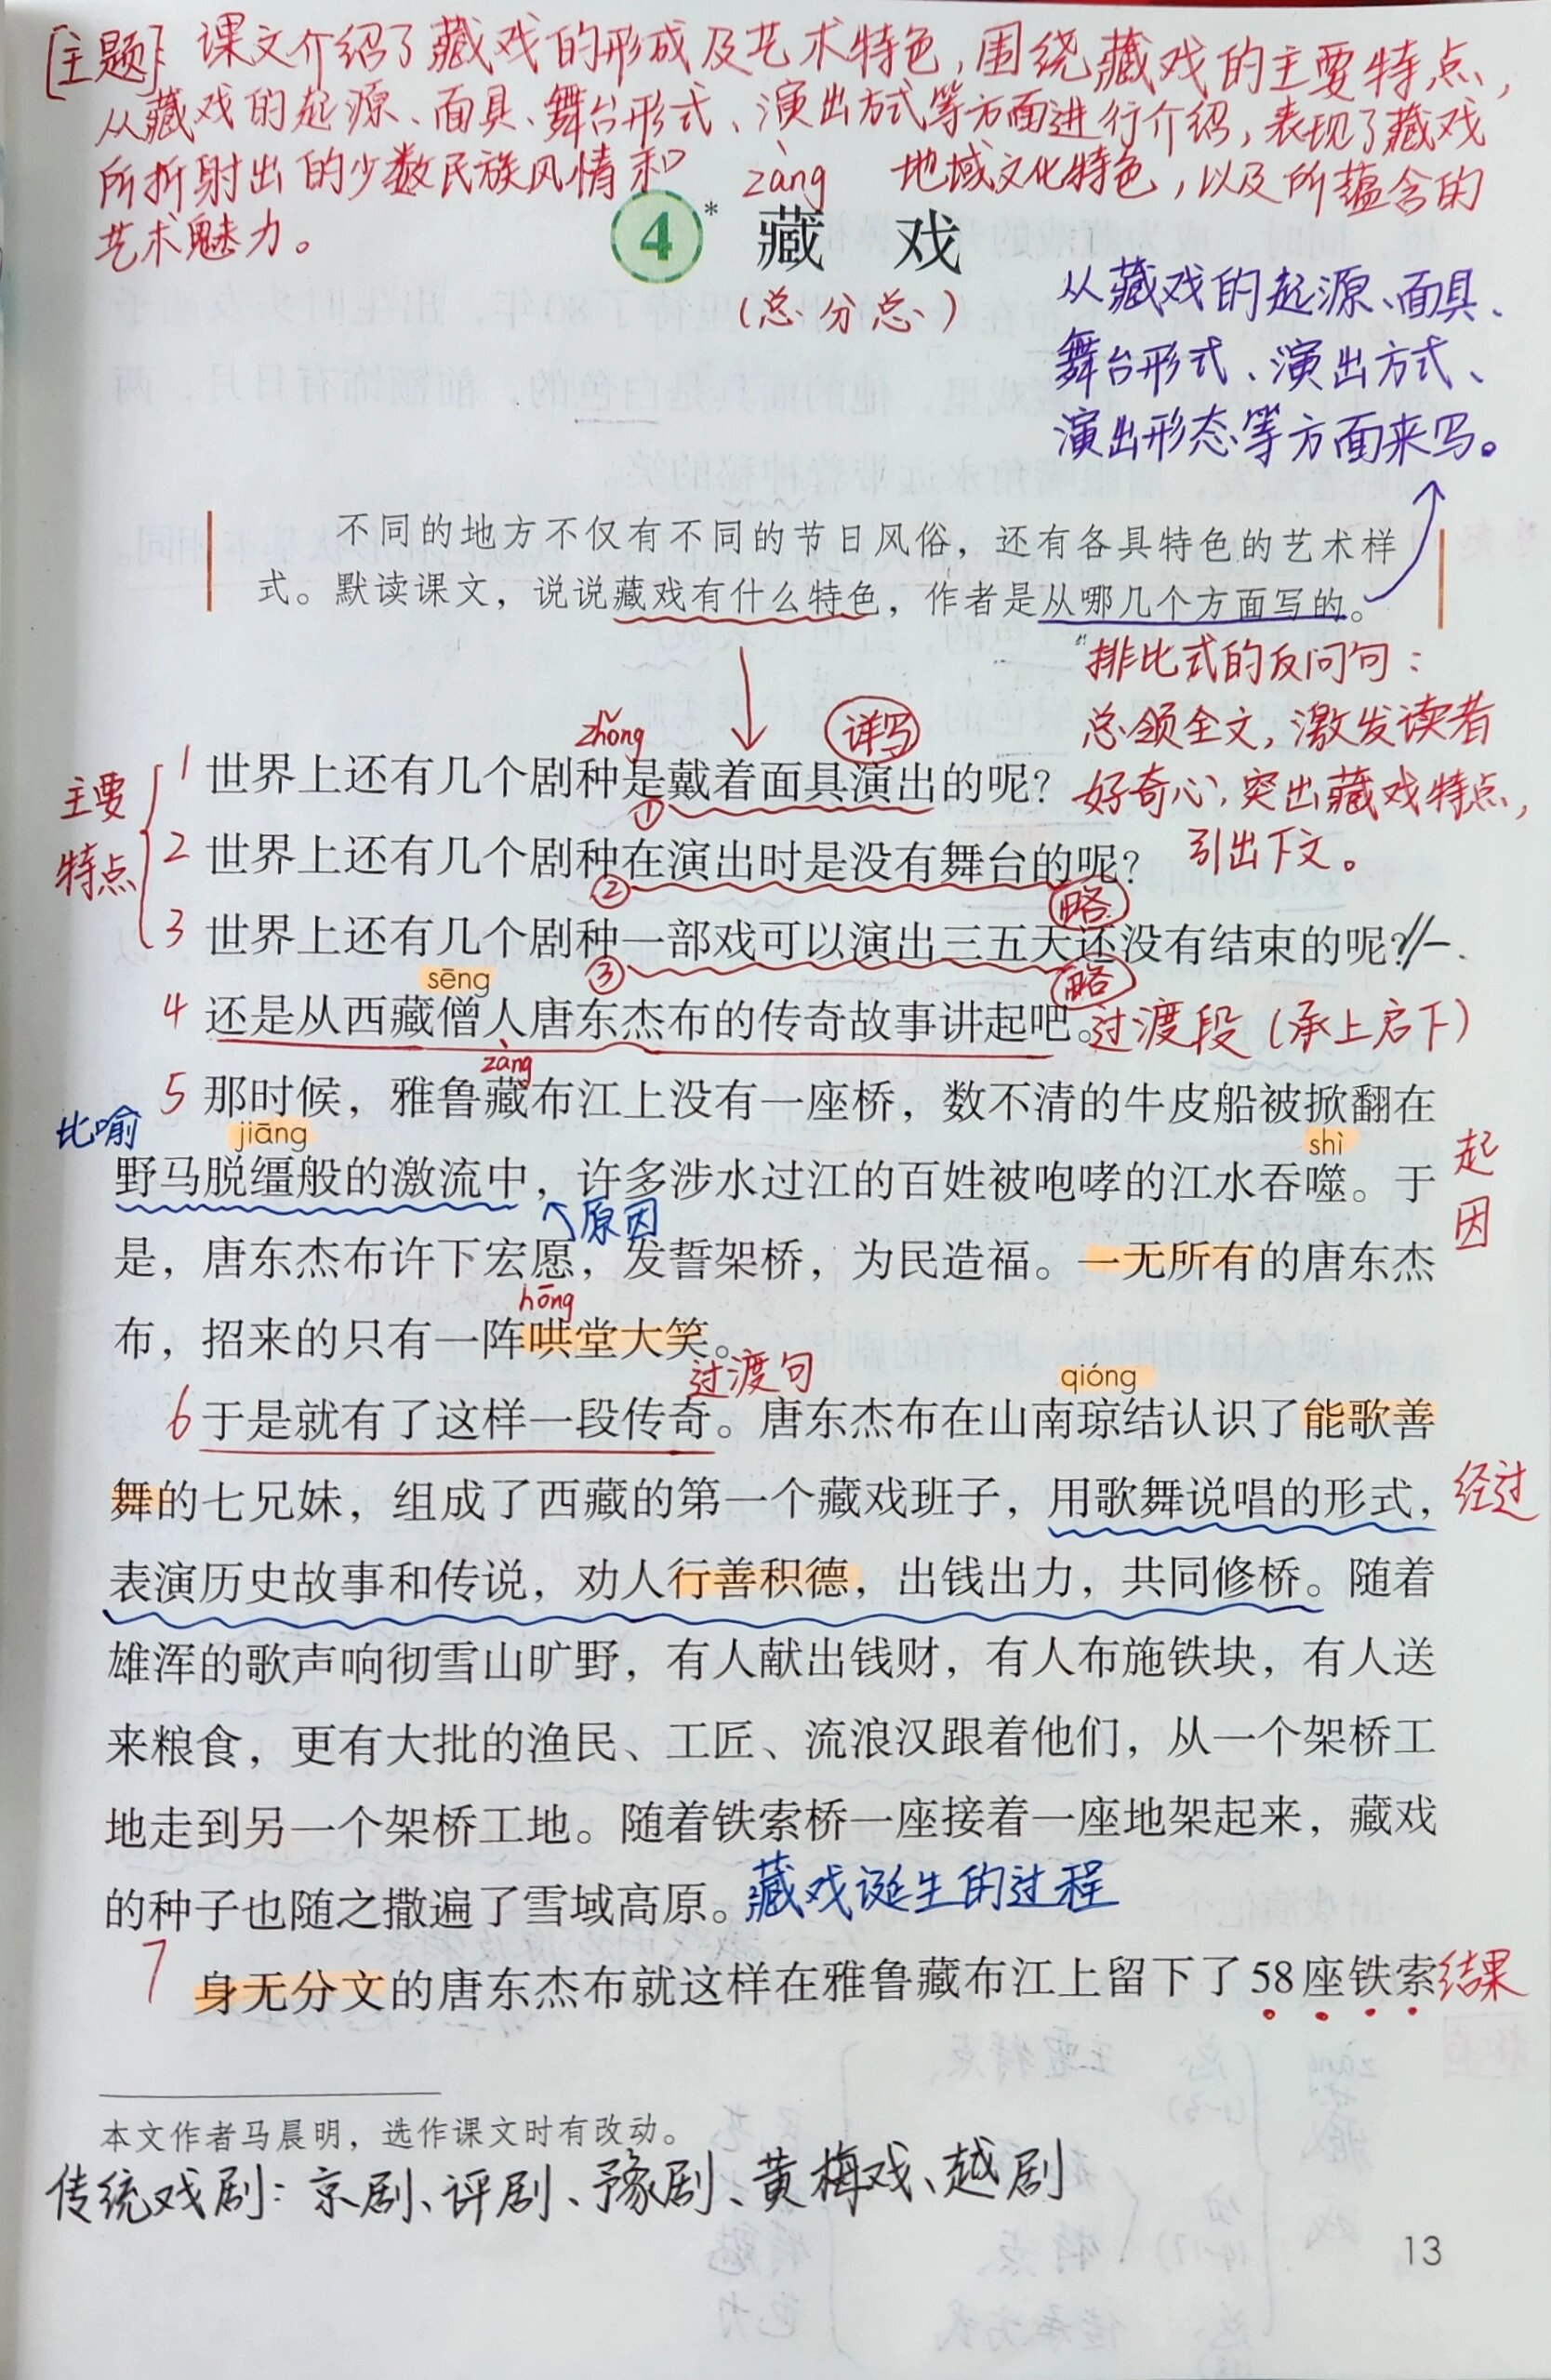 [主题]：课文介绍了藏戏的形成及艺术特色，围绕藏戏的主要特点，
从藏戏的起源、面具、舞台形式、演出方式等方面进行介绍，表现了藏戏
所折射出的少数民族风情和地域文化特色，以及所蕴含的
艺术魅力。
zàng
4* 藏 戏
（总分总）
从藏戏的起源、面具、
舞台形式、演出方式、
演出形态等方面来写。
不同的地方不仅有不同的节日风俗，还有各具特色的艺术样
式。默读课文，说说藏戏有什么特色，作者是从哪几个方面写的。
排比式的反问句：
总领全文，激发读者
好奇心，突出藏戏特点，
引出下文。
主要
特点
zhǒng
详写
1 世界上还有几个剧种是戴着面具演出的呢？
①
2 世界上还有几个剧种在演出时是没有舞台的呢？
② 略
3 世界上还有几个剧种一部戏可以演出三五天还没有结束的呢？
sēng ③ 略
4 还是从西藏僧人唐东杰布的传奇故事讲起吧。过渡段（承上启下）
zàng
5 那时候，雅鲁藏布江上没有一座桥，数不清的牛皮船被掀翻在
比喻 jiāng shì
野马脱缰般的激流中，许多涉水过江的百姓被咆哮的江水吞噬。于
起因
原因
是，唐东杰布许下宏愿，发誓架桥，为民造福。一无所有的唐东杰
hōng
布，招来的只有一阵哄堂大笑。
过渡句 qióng
6 于是就有了这样一段传奇。唐东杰布在山南琼结认识了能歌善
舞的七兄妹，组成了西藏的第一个藏戏班子，用歌舞说唱的形式，
经过
表演历史故事和传说，劝人行善积德，出钱出力，共同修桥。随着
雄浑的歌声响彻雪山旷野，有人献出钱财，有人布施铁块，有人送
来粮食，更有大批的渔民、工匠、流浪汉跟着他们，从一个架桥工
地走到另一个架桥工地。随着铁索桥一座接着一座地架起来，藏戏
的种子也随之撒遍了雪域高原。藏戏诞生的过程
7 身无分文的唐东杰布就这样在雅鲁藏布江上留下了58座铁索
结果
本文作者马晨明，选作课文时有改动。
传统戏剧：京剧、评剧、豫剧、黄梅戏、越剧
13